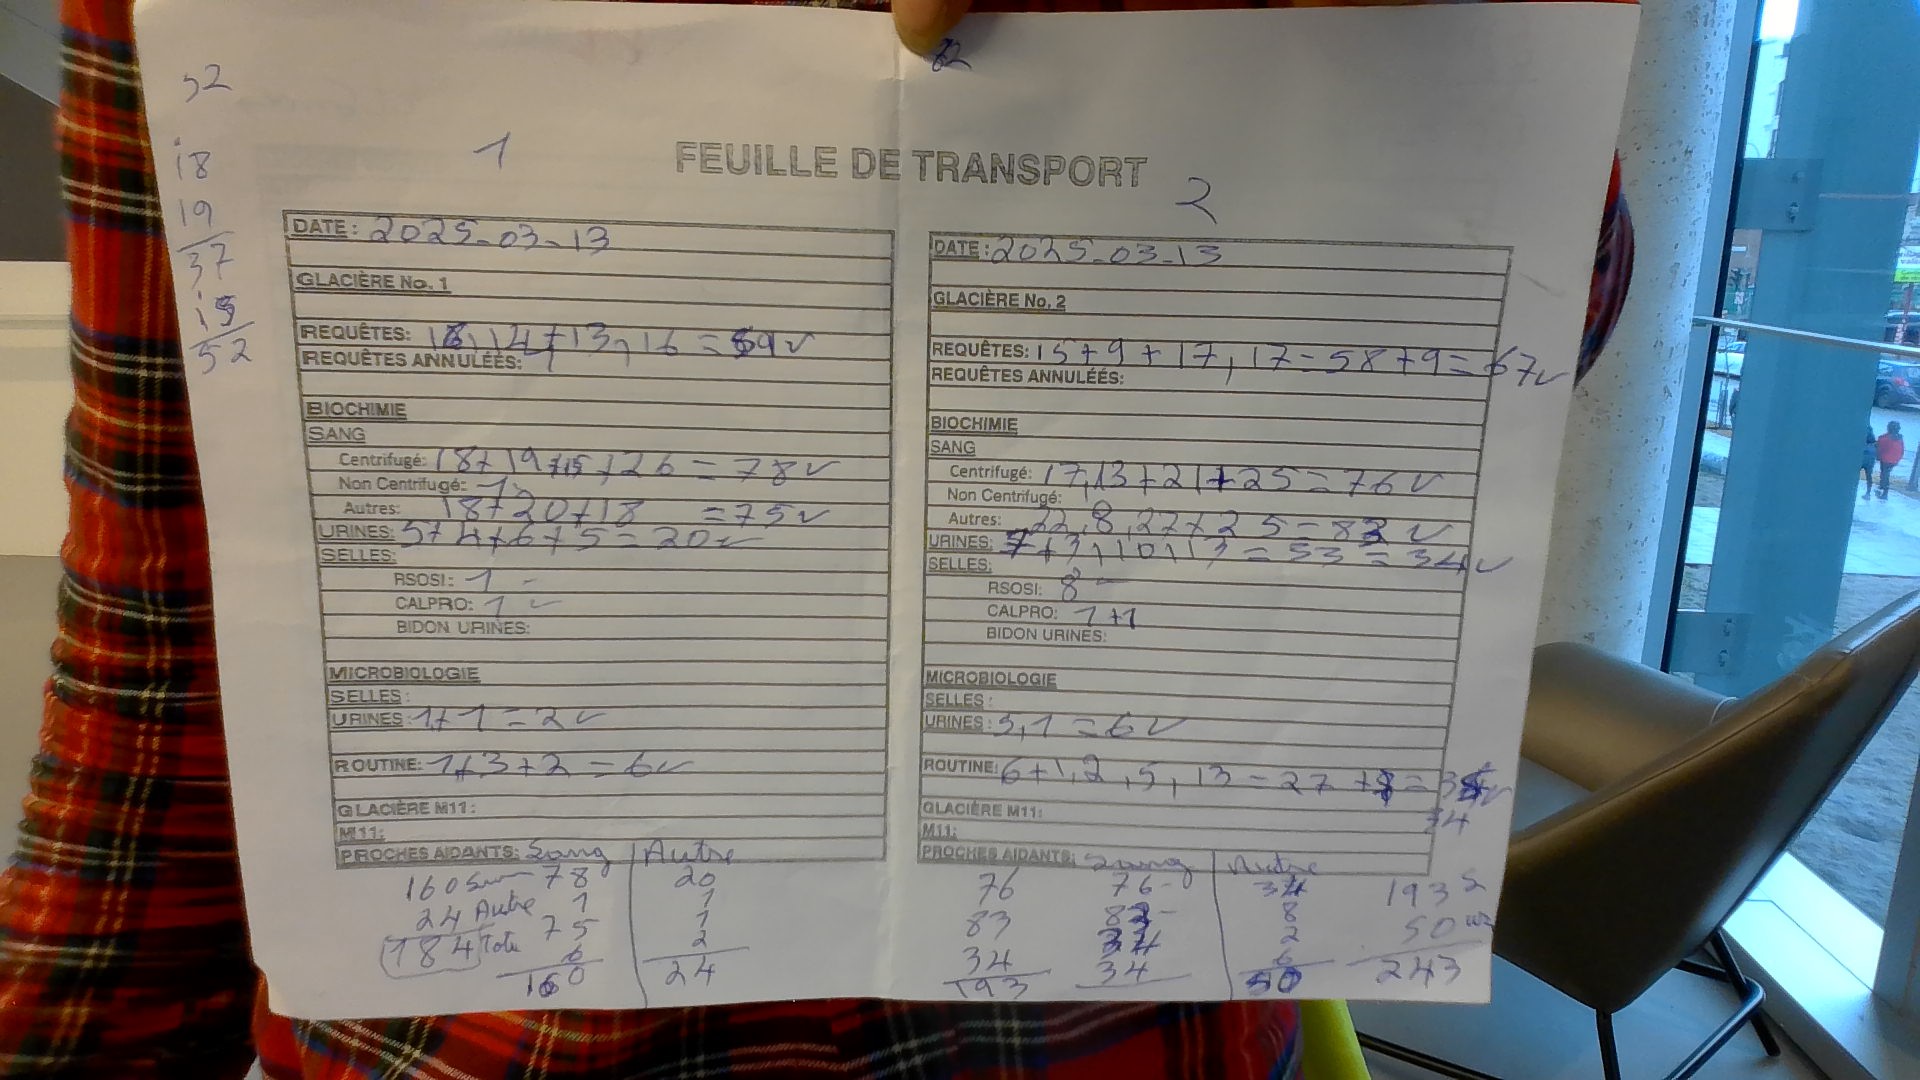 32
18
19
37
15
52
1
FEUILLE DE TRANSPORT
2
DATE : 2025-03-13
GLACIÈRE No. 1
REQUÊTES: 16, 14+13, 16 = 59 ✓
REQUÊTES ANNULÉÉS:
BIOCHIMIE
SANG
Centrifugé: 18+19+15+26 = 78 ✓
Non Centrifugé: 1
Autres: 18+20+18 = 75 ✓
URINES: 5+4+6+5 = 20 ✓
SELLES:
RSOSI: 1 -
CALPRO: 1 ✓
BIDON URINES:
MICROBIOLOGIE
SELLES :
URINES : 1+1 = 2 ✓
ROUTINE: 1+3+2 = 6 ✓
GLACIÈRE M11:
M11:
PROCHES AIDANTS: Sang | Autre
160 78 20
24 Autre 1 1
184 75 1
6 2
160 24
DATE : 2025-03-13
GLACIÈRE No. 2
REQUÊTES: 15+9+17, 17 = 58+9 = 67 ✓
REQUÊTES ANNULÉÉS:
BIOCHIMIE
SANG
Centrifugé: 17, 13+21+25 = 76 ✓
Non Centrifugé:
Autres: 22, 8, 27+25 = 83 ✓
URINES: +3, 10, 13 = 53 = 34 ✓
SELLES:
RSOSI: 8 -
CALPRO: 1+1
BIDON URINES:
MICROBIOLOGIE
SELLES :
URINES : 5, 1 = 6 ✓
ROUTINE: 6+1, 2, 5, 13 = 27 + = ✓
34
GLACIÈRE M11:
M11:
PROCHES AIDANTS: Sang | Autre
76 76- 34 193 S
83 8 50
34 34 2 243
193 34 6
50